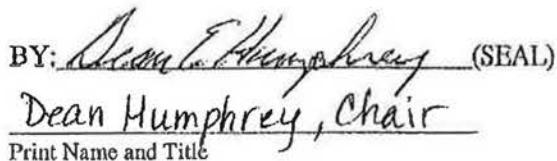 BY: Dean E. Humphrey (SEAL)
Dean Humphrey, Chair
Print Name and Title